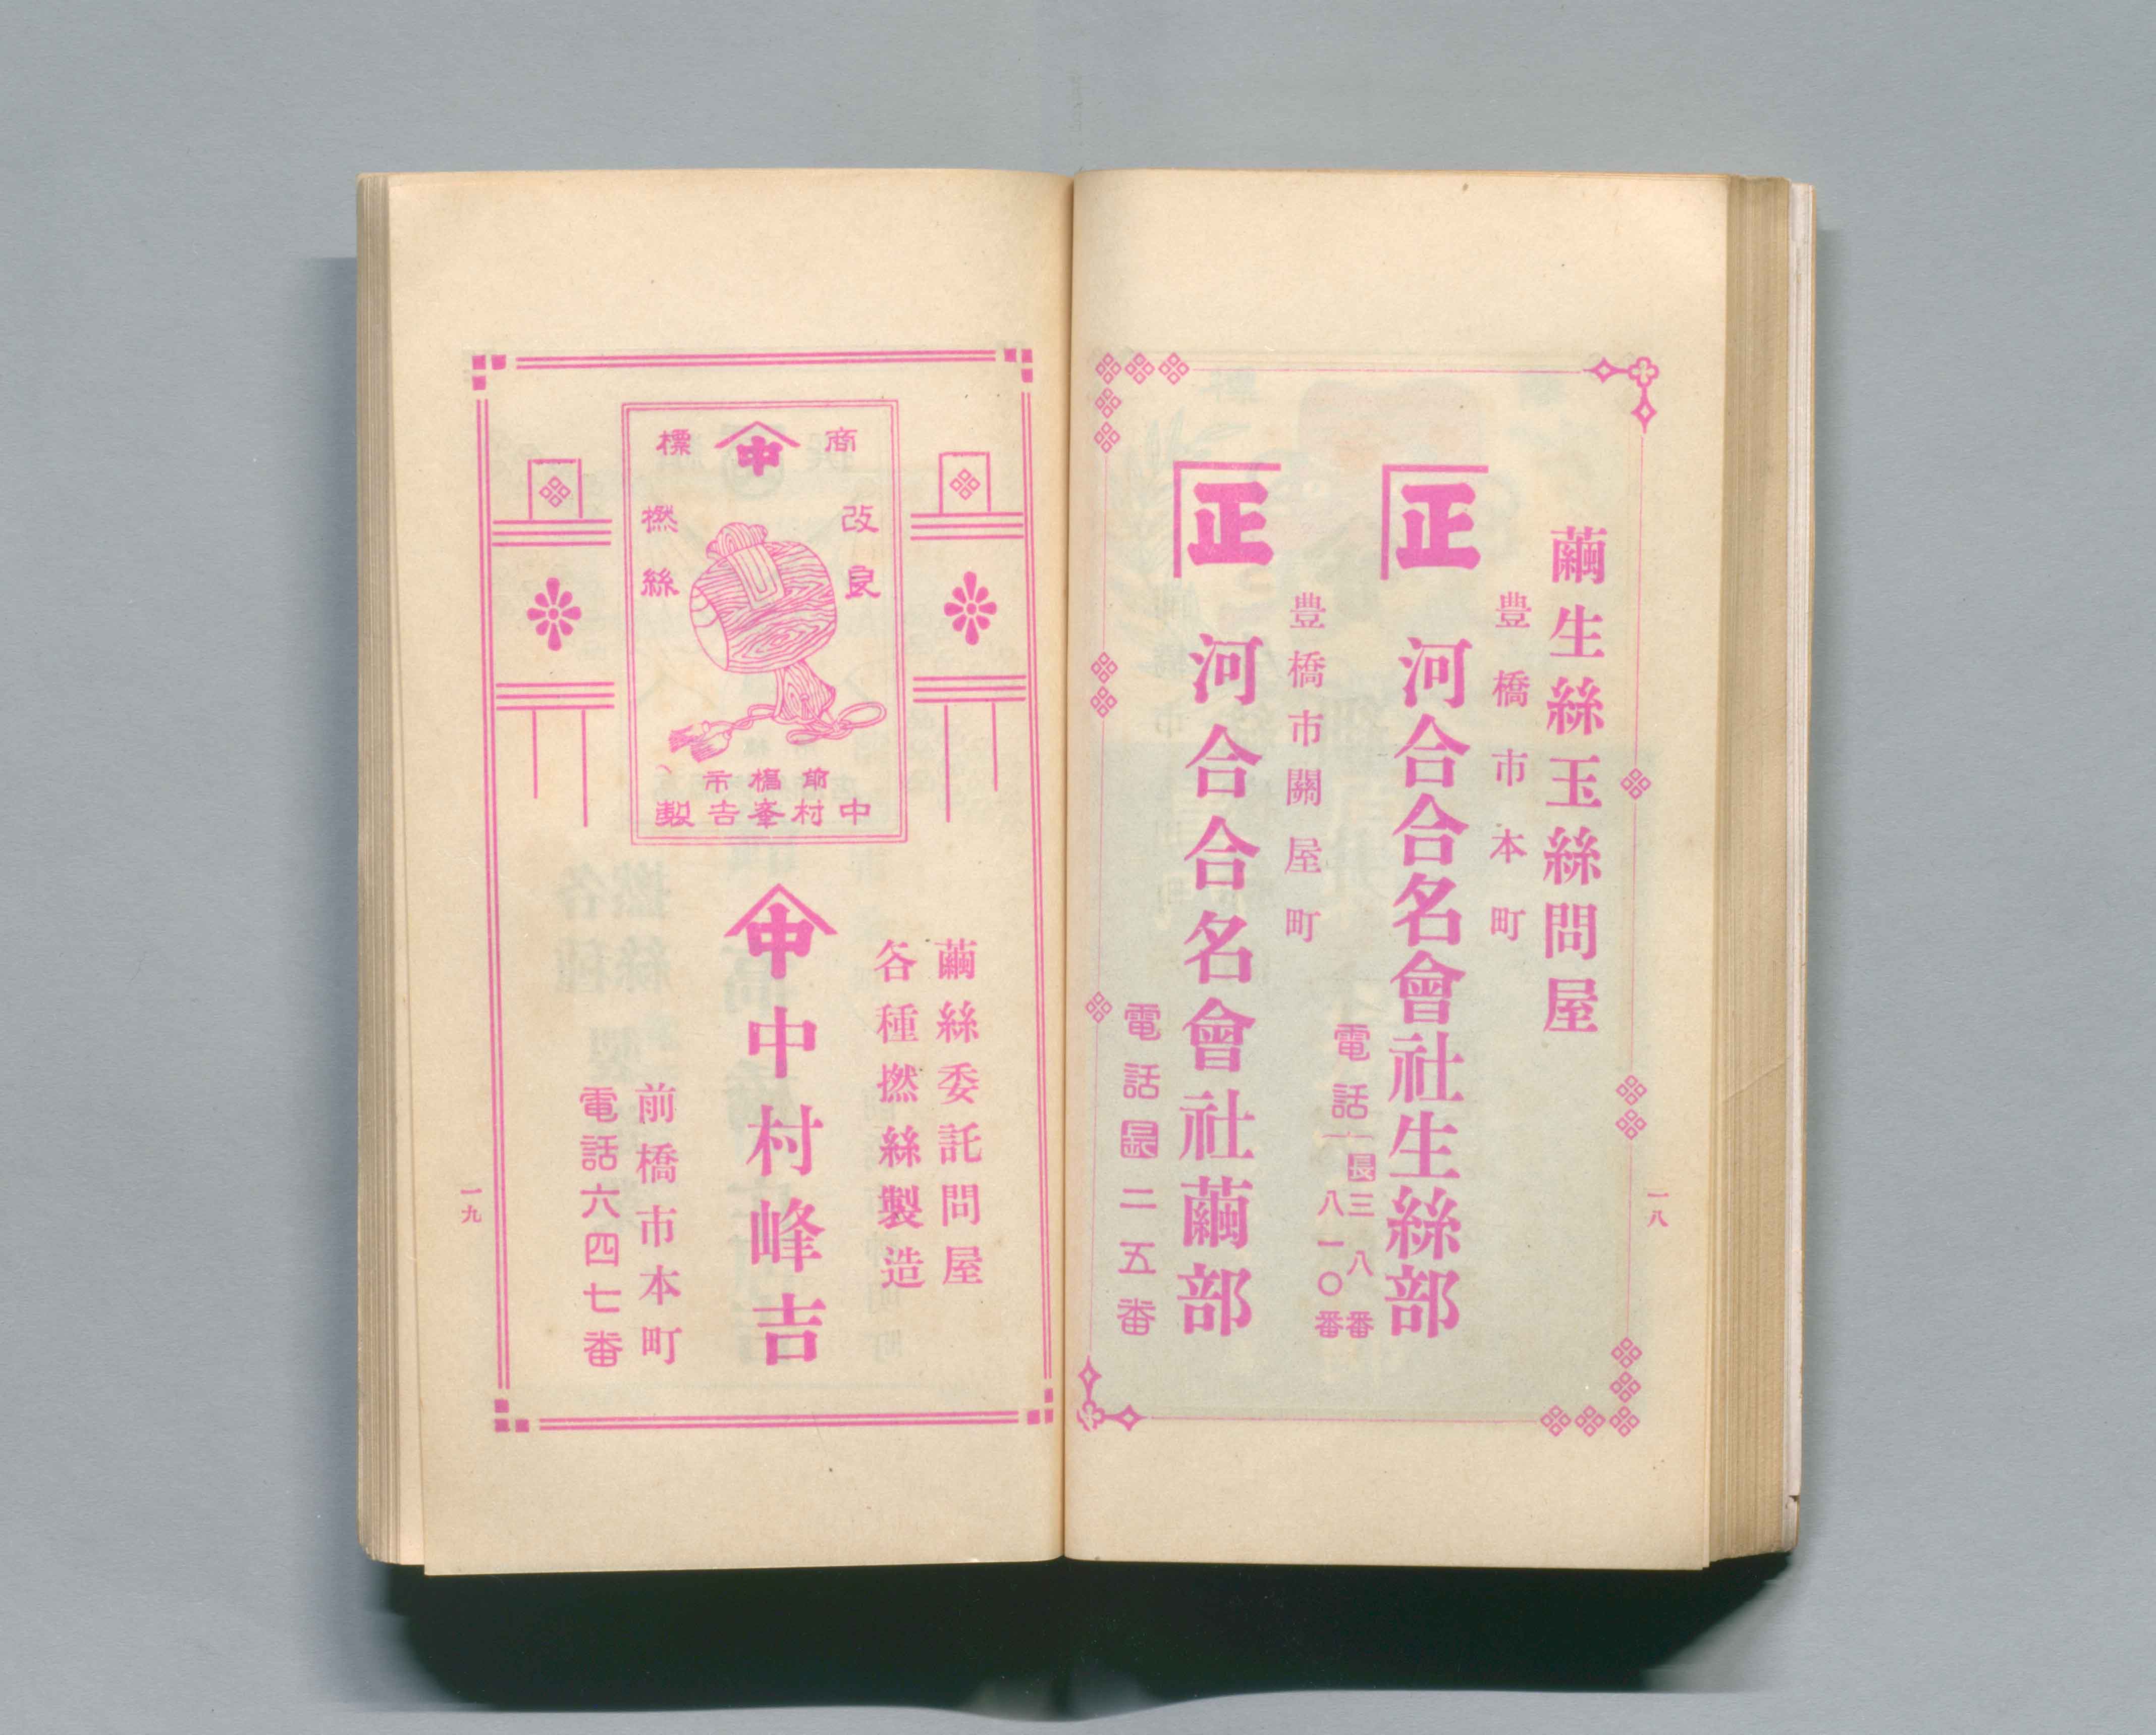 繭生絲玉絲問屋
豊橋市本町
正 河合合名會社生絲部
電話
長三八番
八一〇番
豊橋市關屋町
正 河合合名會社繭部
電話長二五番
一八
商標
中
改良
撚絲
前橋市
中村峯吉製
繭絲委託問屋
各種撚絲製造
中 中村峰吉
前橋市本町
電話六四七番
一九